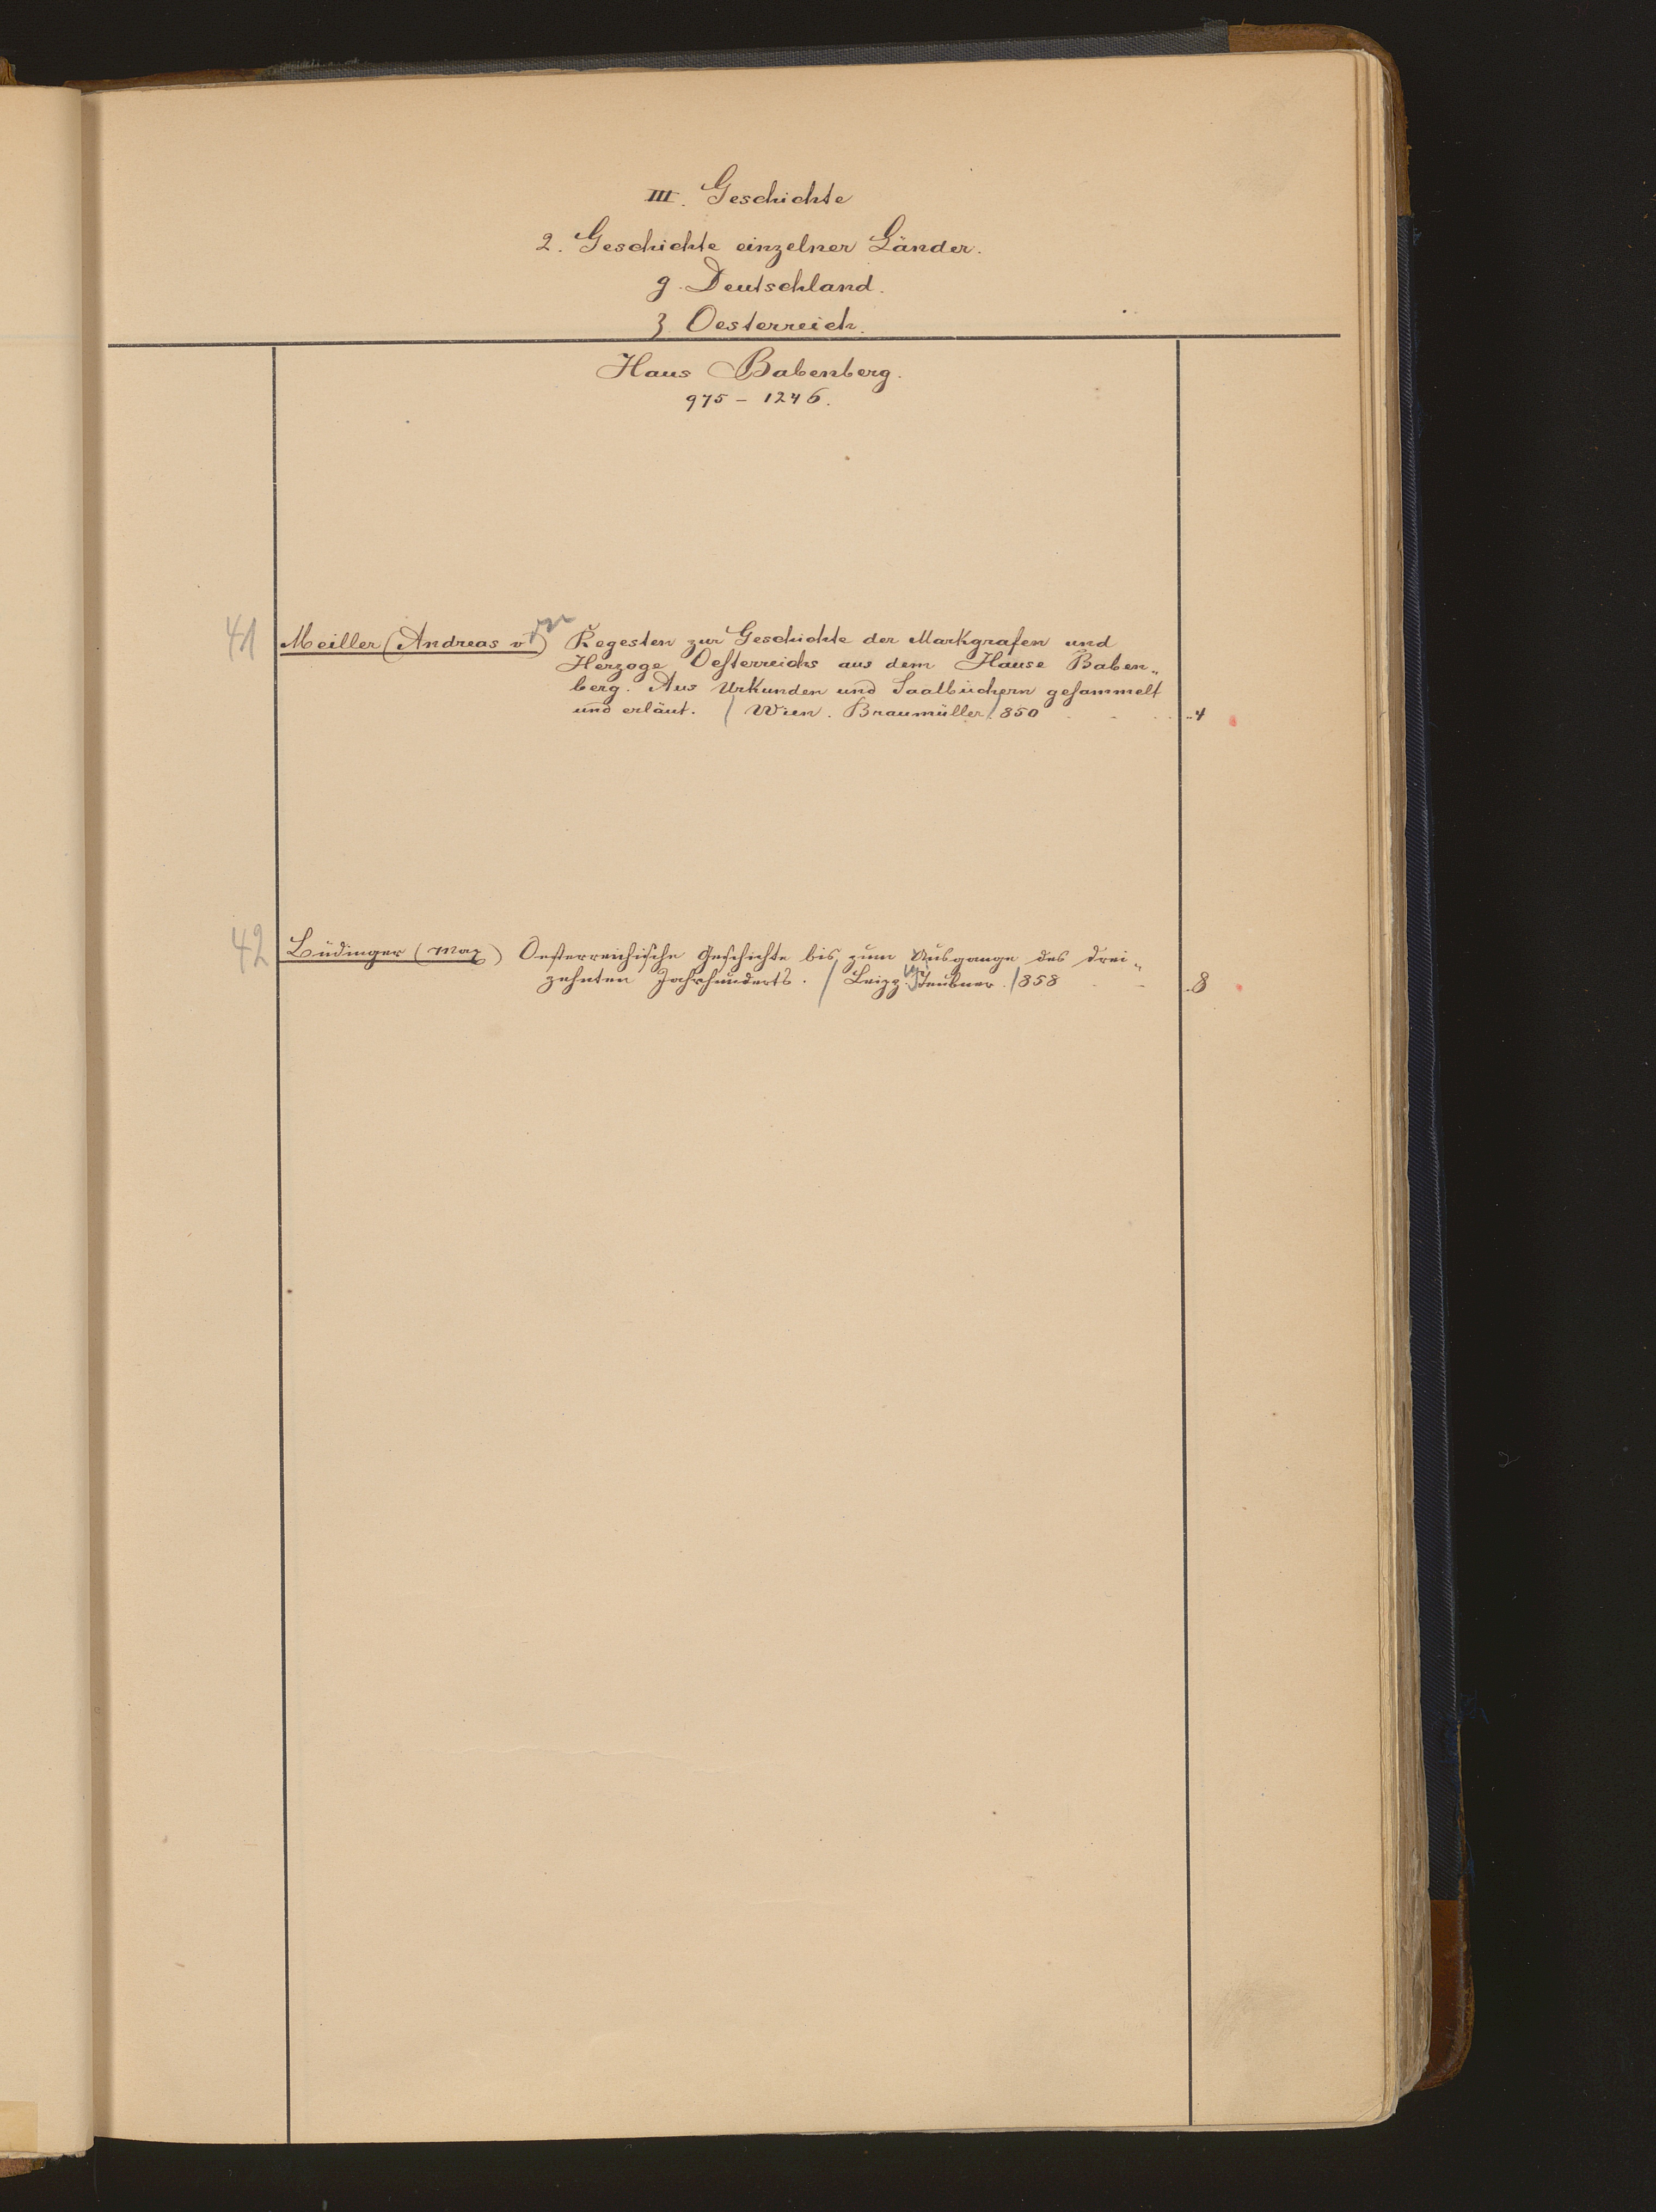 III. Geschichte
2. Geschichte einzelner Länder.
g. Deutschland.
3 Oesterreich.
Haus Babenberg.
975 - 1246.
41 Meiller (Andreas von) Regesten zur Geschichte der Markgrafen und
Herzoge Oesterreichs aus dem Hause Baben„
berg. Aus Urkunden und Saalbüchern gesammelt
und erläut. / Wien. Braumüller / 850 4
42 Büdinger (Max) Oesterreichische Geschichte bis zum Ausgange des drei„
zehnten Jahrhunderts. / Leipz. Teubner. / 858 8